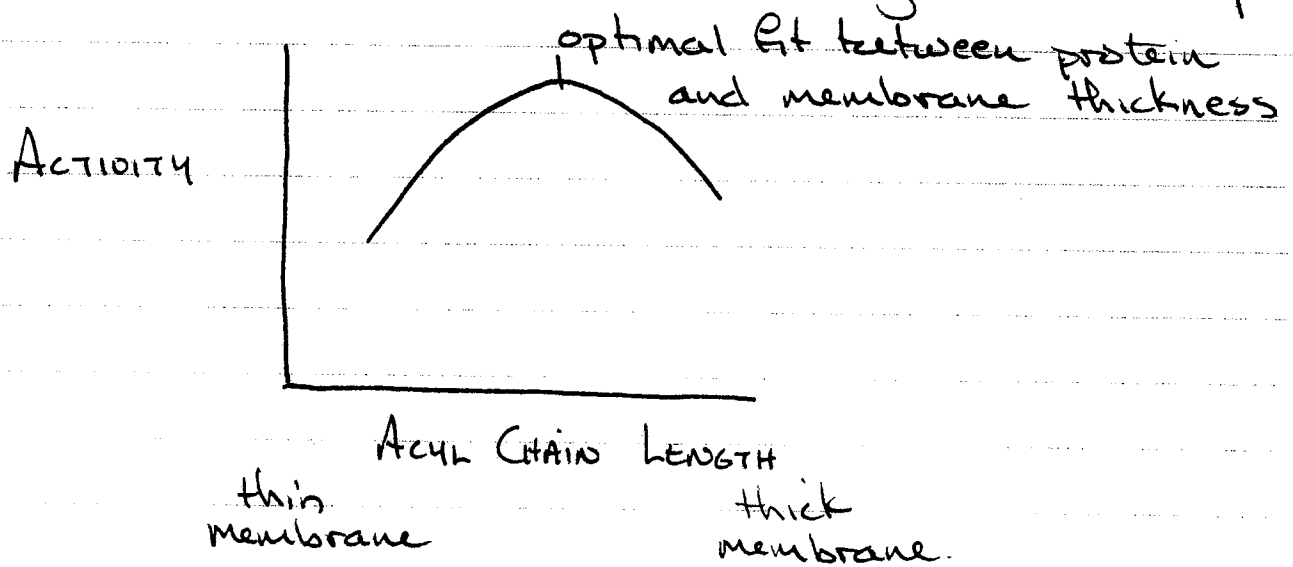 optimal fit between protein
and membrane thickness
ACTIVITY
ACYL CHAIN LENGTH
thin
membrane
thick
membrane.